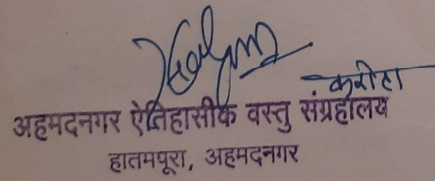 करीता
अहमदनगर ऐतिहासीक वस्तु संग्रहालय
हातमपूरा, अहमदनगर